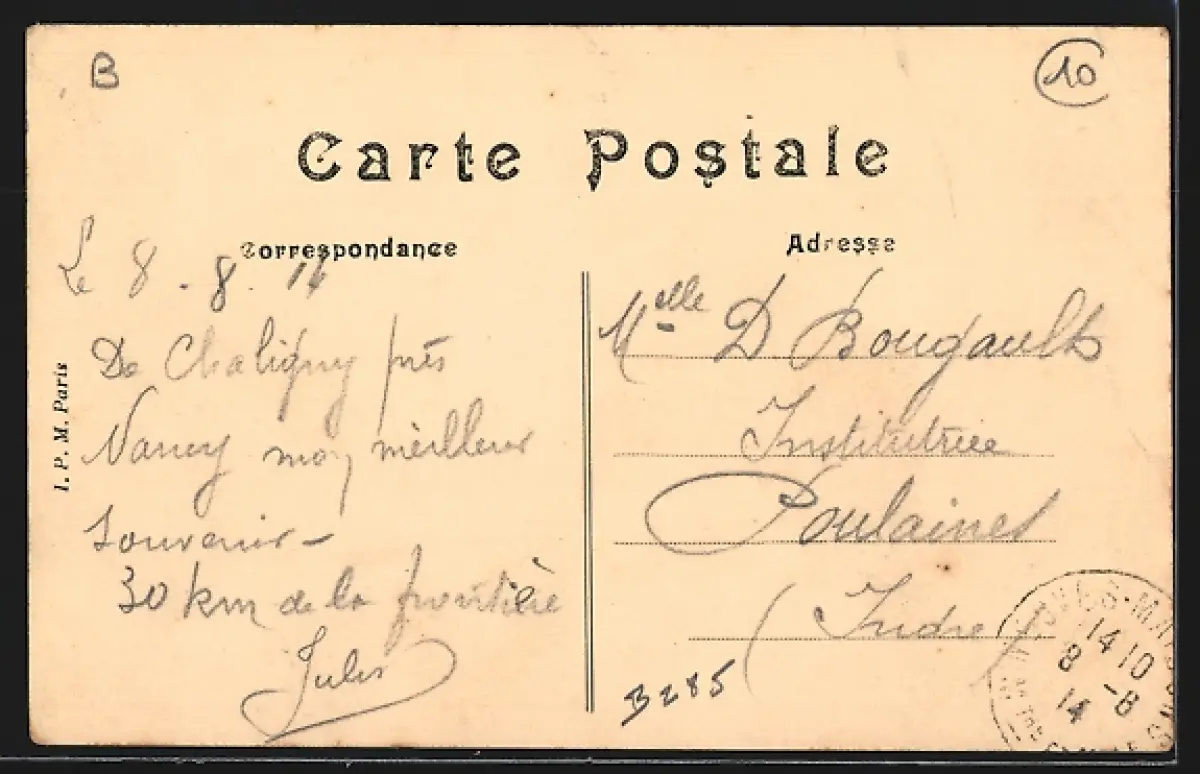 B
10
Carte Postale
Correspondance
Adresse
Le 8 . 8 . 14
De Chaligny près
Nancy mon meilleur
souvenir –
30 km de la frontière
Jules
I. P. M. Paris
Melle D Bougault
Institutrice
Poulaines
(Indre)
B285
14 10
8 -8
14